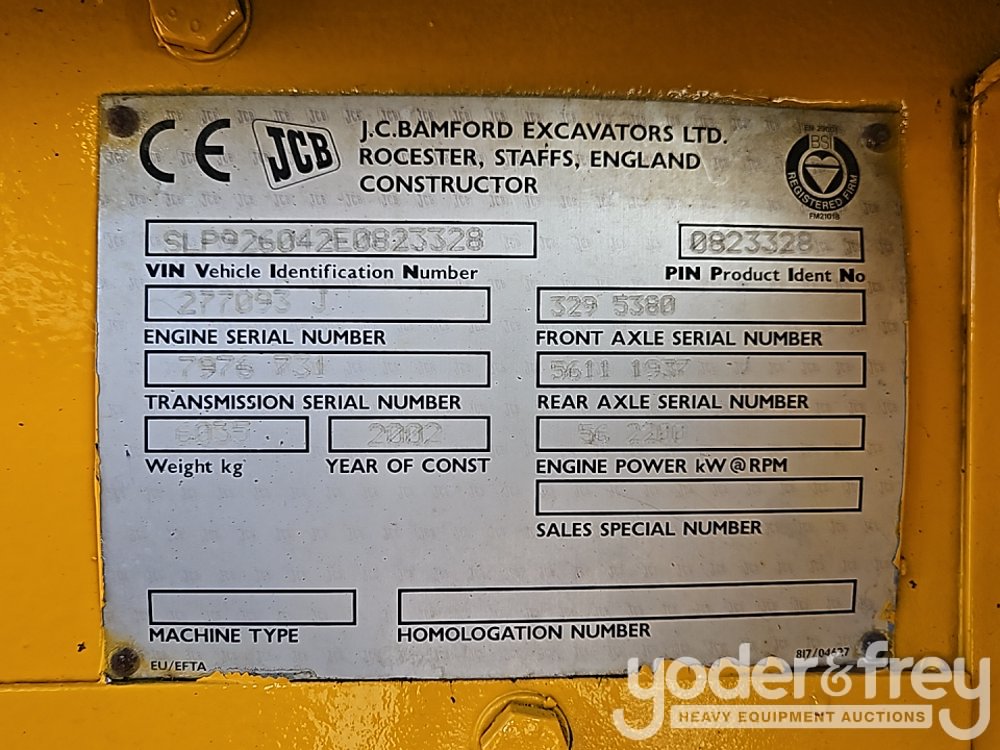 CE JCB
J.C.BAMFORD EXCAVATORS LTD.
ROCESTER, STAFFS, ENGLAND
CONSTRUCTOR
BSI
REGISTERED FIRM
SLP926042E0823328
0823328
VIN Vehicle Identification Number
PIN Product Ident No
277093 J
329 5380
ENGINE SERIAL NUMBER
FRONT AXLE SERIAL NUMBER
7976 731
5611 1937
TRANSMISSION SERIAL NUMBER
REAR AXLE SERIAL NUMBER
2002
56 2200
Weight kg
YEAR OF CONST
ENGINE POWER kW @ RPM
SALES SPECIAL NUMBER
MACHINE TYPE
HOMOLOGATION NUMBER
EU/EFTA
yoder&frey
HEAVY EQUIPMENT AUCTIONS